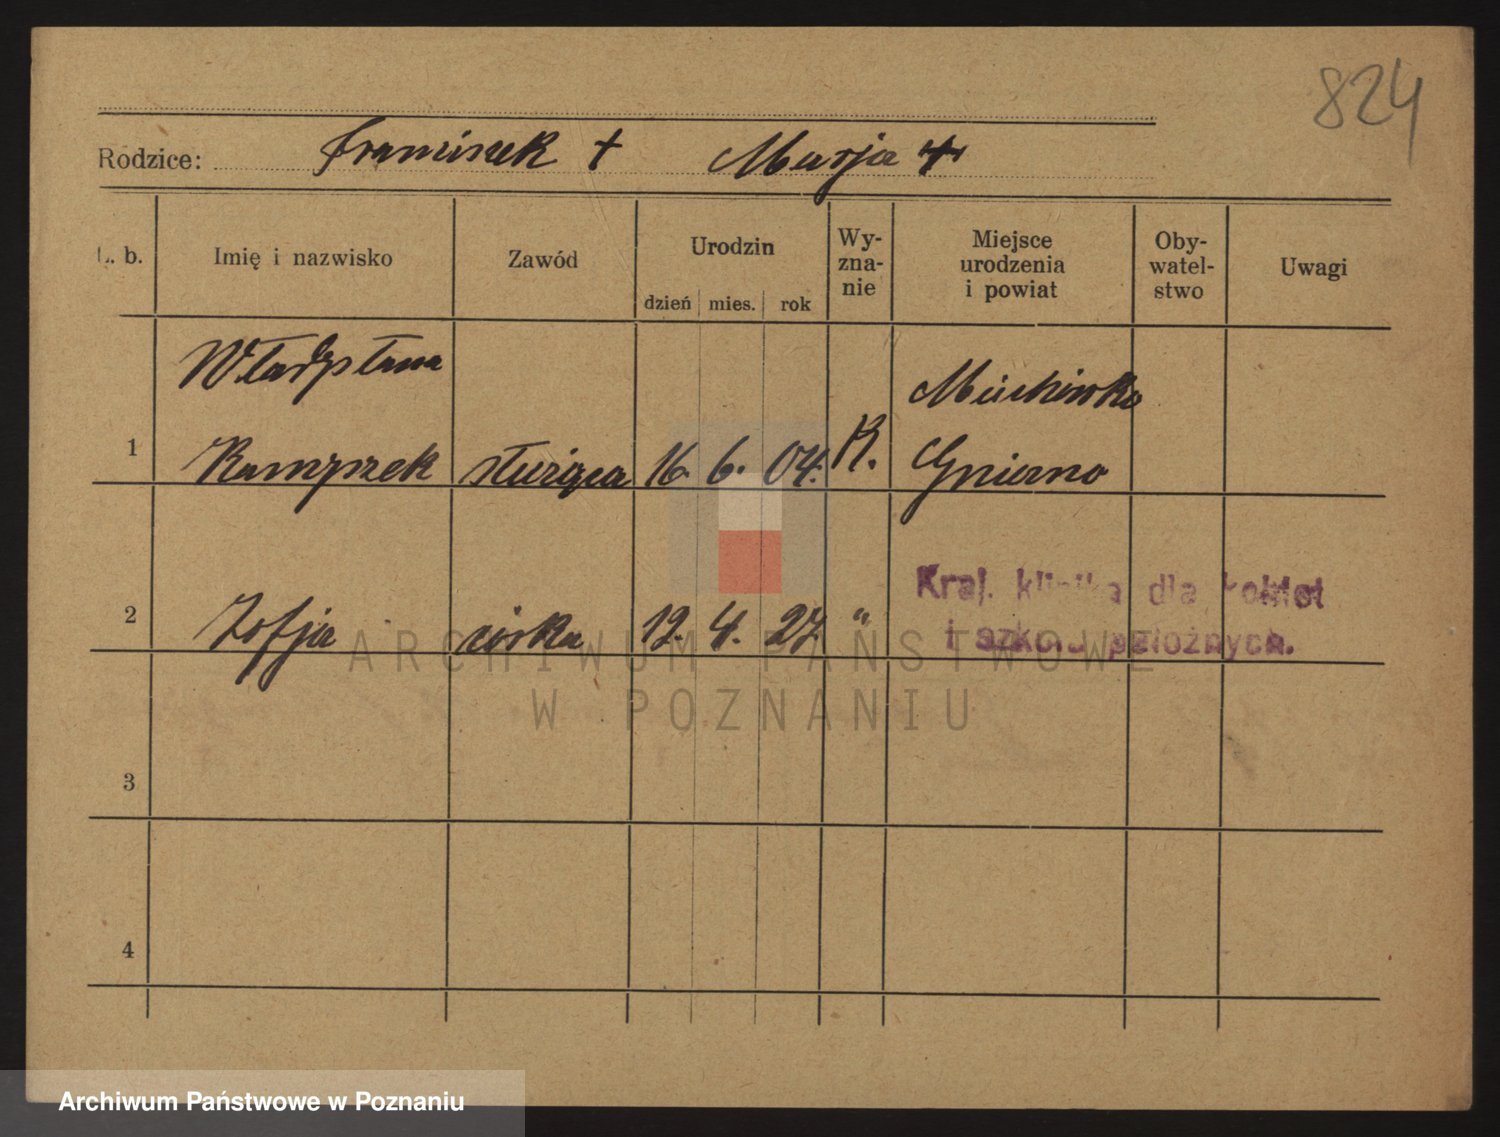 824
Rodzice: Franciszek + Marja +
L. b.
Imię i nazwisko
Zawód
Urodzin
dzień mies. rok
Wy-
zna-
nie
Miejsce
urodzenia
i powiat
Oby-
watel-
stwo
Uwagi
Władysława
1 służąca 16. 6. 04. K.
Gniezno
2 Zofja córka 12. 4. 27. "
Kraj. klinika dla kobiet
i szkoła położnych.
3
4
ARCHIWUM PAŃSTWOWE
W POZNANIU
Archiwum Państwowe w Poznaniu